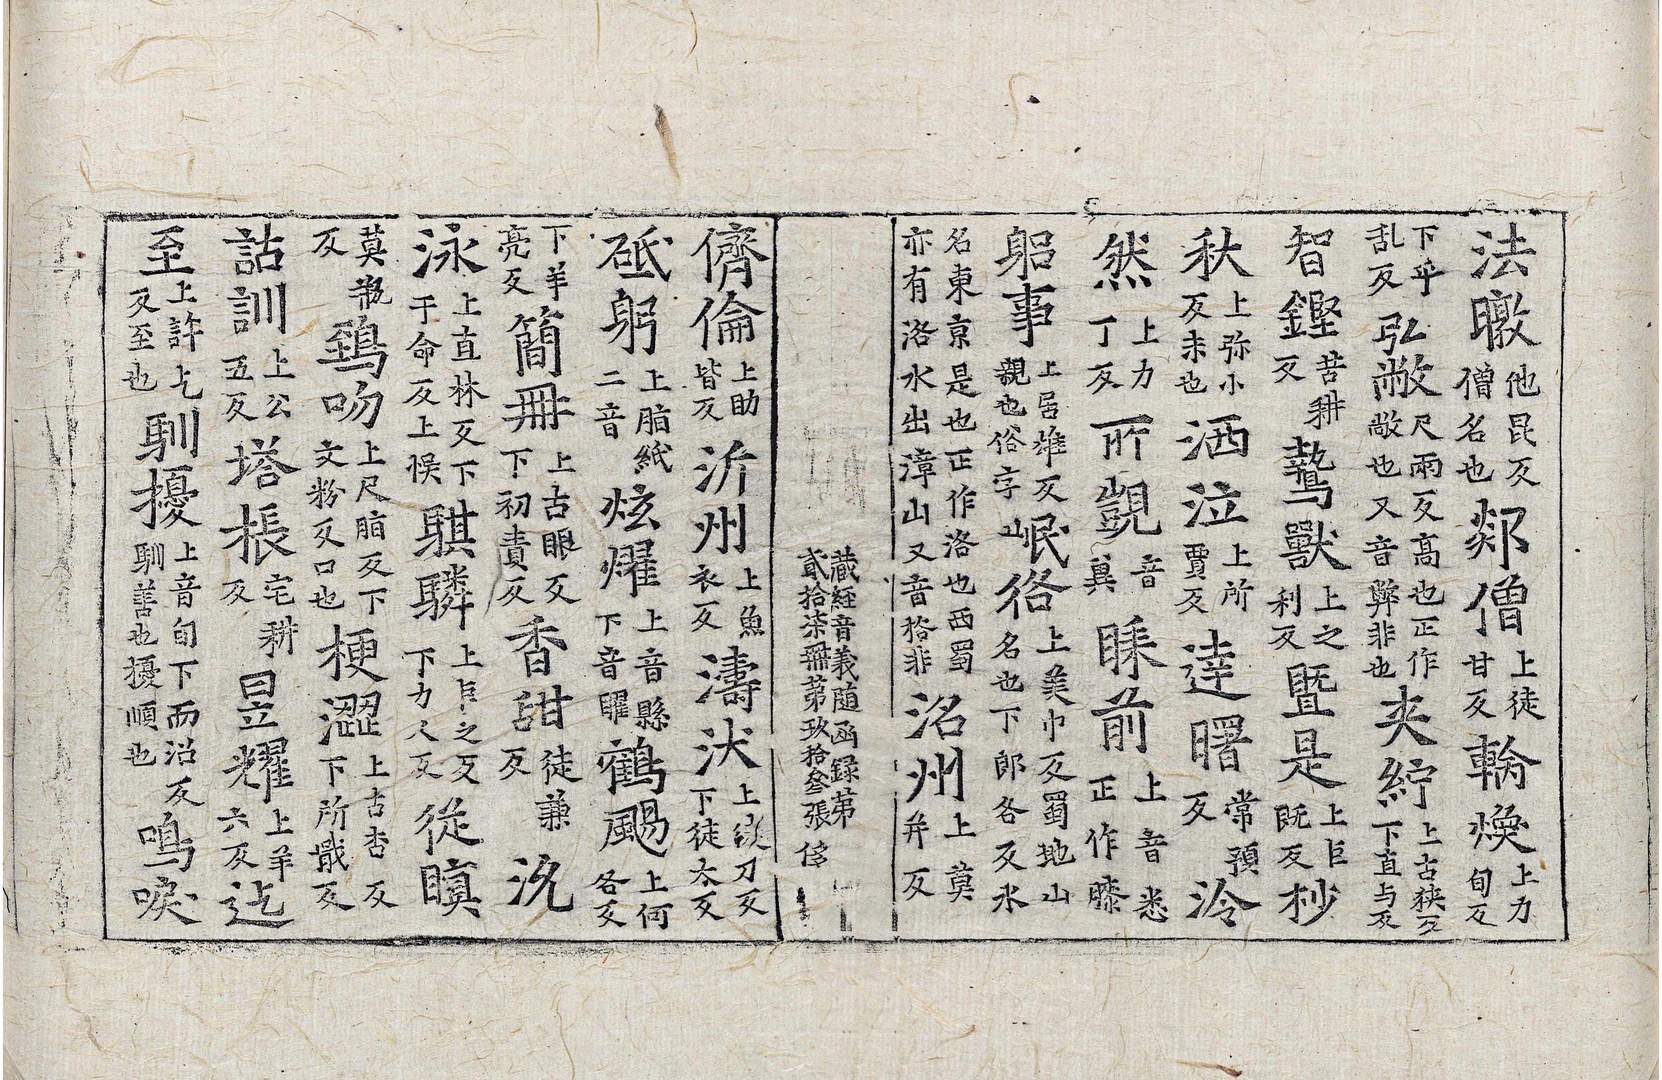 法暾他昆反僧名也郯僧上徒甘反輪煥上力旬反
下乎乱反弘敞尺兩反高也正作敞也又音弊非也夾紵上古狹反下直与反
智鏗苦耕反鷙獸上之利反暨是上巨既反杪
秋上弥小反末也洒泣上所賈反逹曙常預反泠
然上力丁反所覬音冀睐前上音悉正作膝
躬事上居雄反親也俗字岷峉上美巾反蜀地山名也下郎各反水
名東京是也正作洛也西蜀亦有洛水出漳山又音挌非洺州上莫并反
藏経音義随函録第貳拾柒冊第玖拾叄張
儕倫上助皆反沂州上魚衣反濤汏上徒刀反下徒太反
砥躬上脂紙二音炫燿上音縣下音曜鶴颺上何各反
下羊亮反簡冊上古眼反下初責反香甜徒兼反沈
泳上直林反下于命反上悮騏驎上巨之反下力人反從瞋
莫瓶反鵄吻上尺脂反下文粉反口也梗澀上古杏反下所戢反
詁訓上公五反塔棖宅耕反昱耀上羊六反迄
至上許乞反至也馴擾上音旬下而沼反馴善也擾順也鳴唳